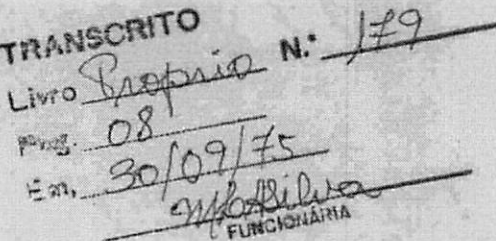 TRANSCRITO
Livro Proprio N.º 179
Pag. 08
Em, 30/09/75
FUNCIONÁRIA